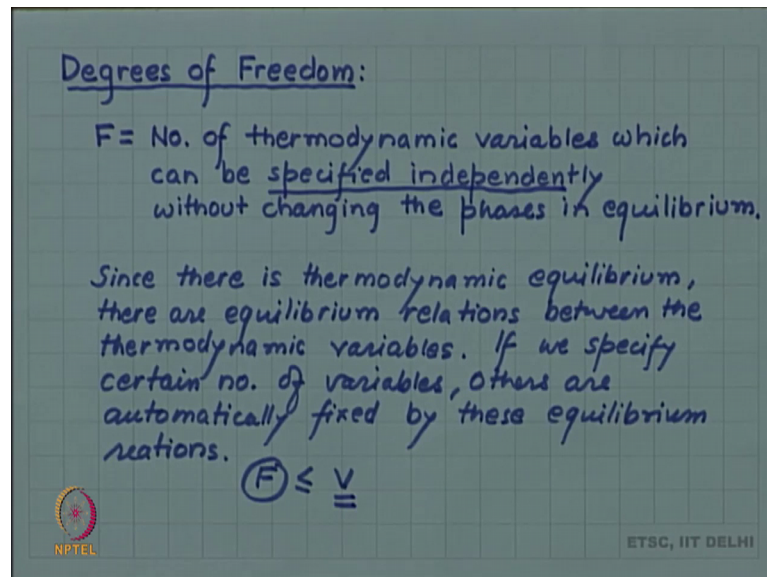 Degrees of Freedom:
F = No. of thermodynamic variables which
can be specified independently
without changing the phases in equilibrium.
Since there is thermodynamic equilibrium,
there are equilibrium relations between the
thermodynamic variables. If we specify
certain no. of variables, others are
automatically fixed by these equilibrium
reations.
F ≤ V
NPTEL
ETSC, IIT DELHI